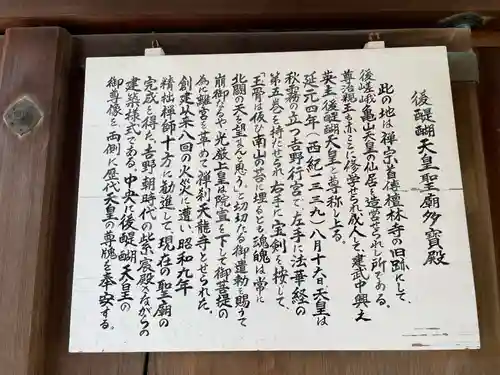 後醍醐天皇聖廟多寶殿
此の地は禅宗首傳檀林寺の旧跡にして、
後嵯峨亀山天皇の仙居を造営せられし所である。
尊治親王も亦こゝに侍せられ成人して建武中興之
英主後醍醐天皇と尊称し上る。
延元四年(西紀一三三九)八月十六日天皇は
秋霧の立つ吉野行宮で左手に法華経の
第五巻を持たせられ右手に宝剣を按して、
「玉骨は仮ひ南山の苔に埋るとも魂魄は常に
北闕の天を望まんと思う」と切切たる御遺勅を賜うて
崩御になるや光厳上皇は院宣を下して御菩提の
為に離宮を革めて禅刹天龍寺とせられた。
創建以来八回の火災に遭い、昭和九年
精拙禅師十方に勧進して、現在の聖廟の
完成を得た。吉野朝時代の紫宸殿さながらの
建築様式である。中央に後醍醐天皇の
御尊像と両側に歴代天皇の尊牌を奉安する。